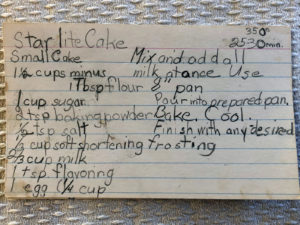 Starlite Cake
350°
25-30 min.
Small Cake
1½ cups minus
1 Tbsp flour
1 cup sugar
2 tsp baking powder
½ tsp salt
⅓ cup soft shortening
⅔ cup milk
1 tsp. flavoring
1 egg (¼ cup
Mix and add all
milk at once Use
8 pan
Pour into prepared pan.
Bake. Cool.
Finish with any desired
frosting